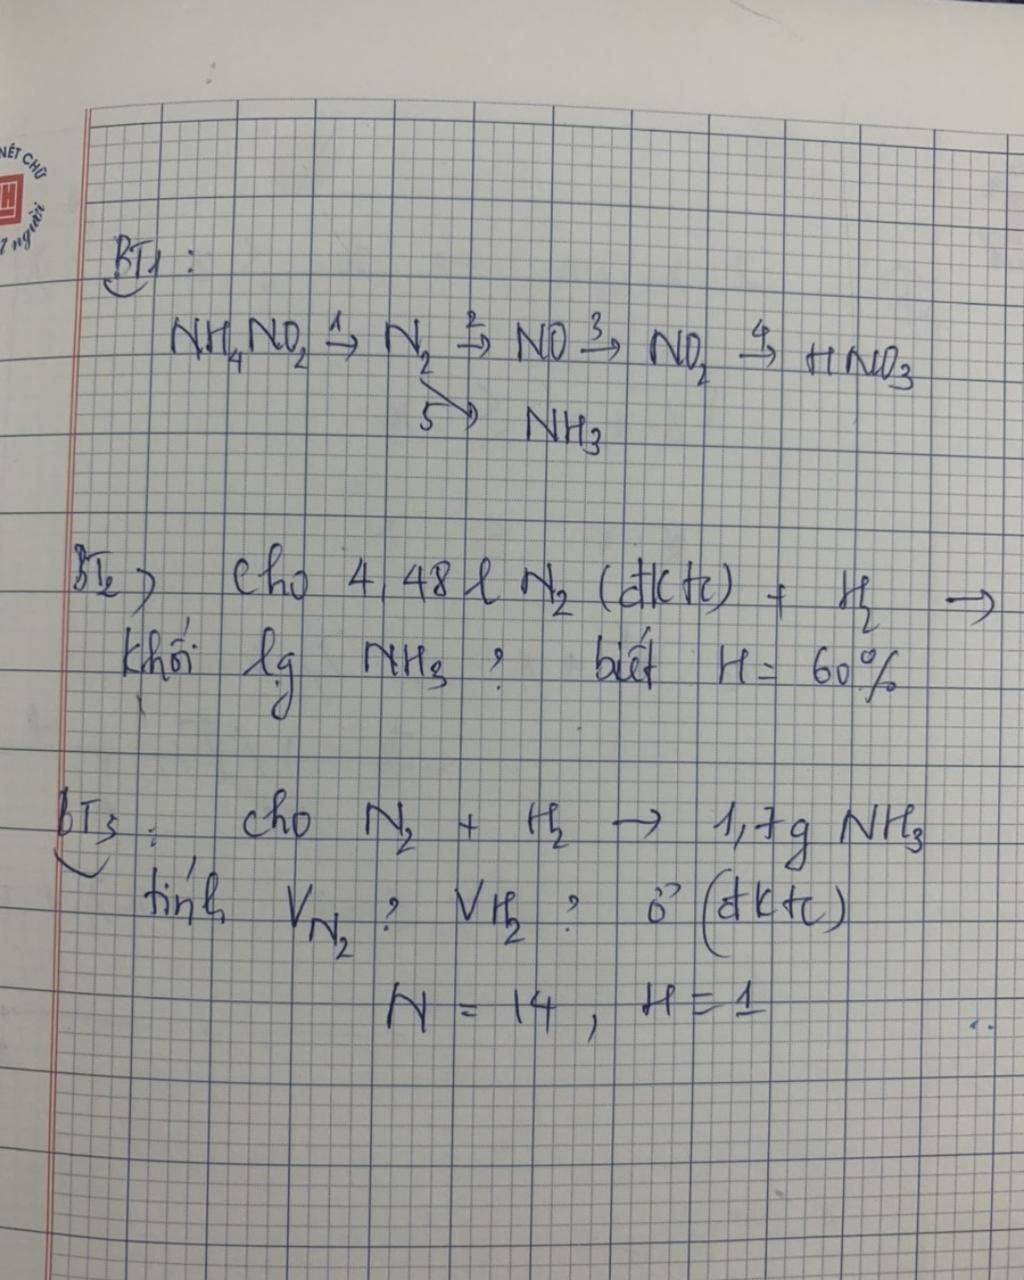 NÉT CHỮ
người
BT1:
NH₄NO₂ 1→ N₂ 2→ NO 3→ NO₂ 4→ HNO₃
5→ NH₃
BT2) Cho 4,48 l N₂ (đktc) + H₂ →
khối lg NH₃ ? biết H = 60%
BT3: cho N₂ + H₂ → 1,7g NH₃
tính V N₂ ? V H₂ ? ở (đktc)
N = 14, H = 1